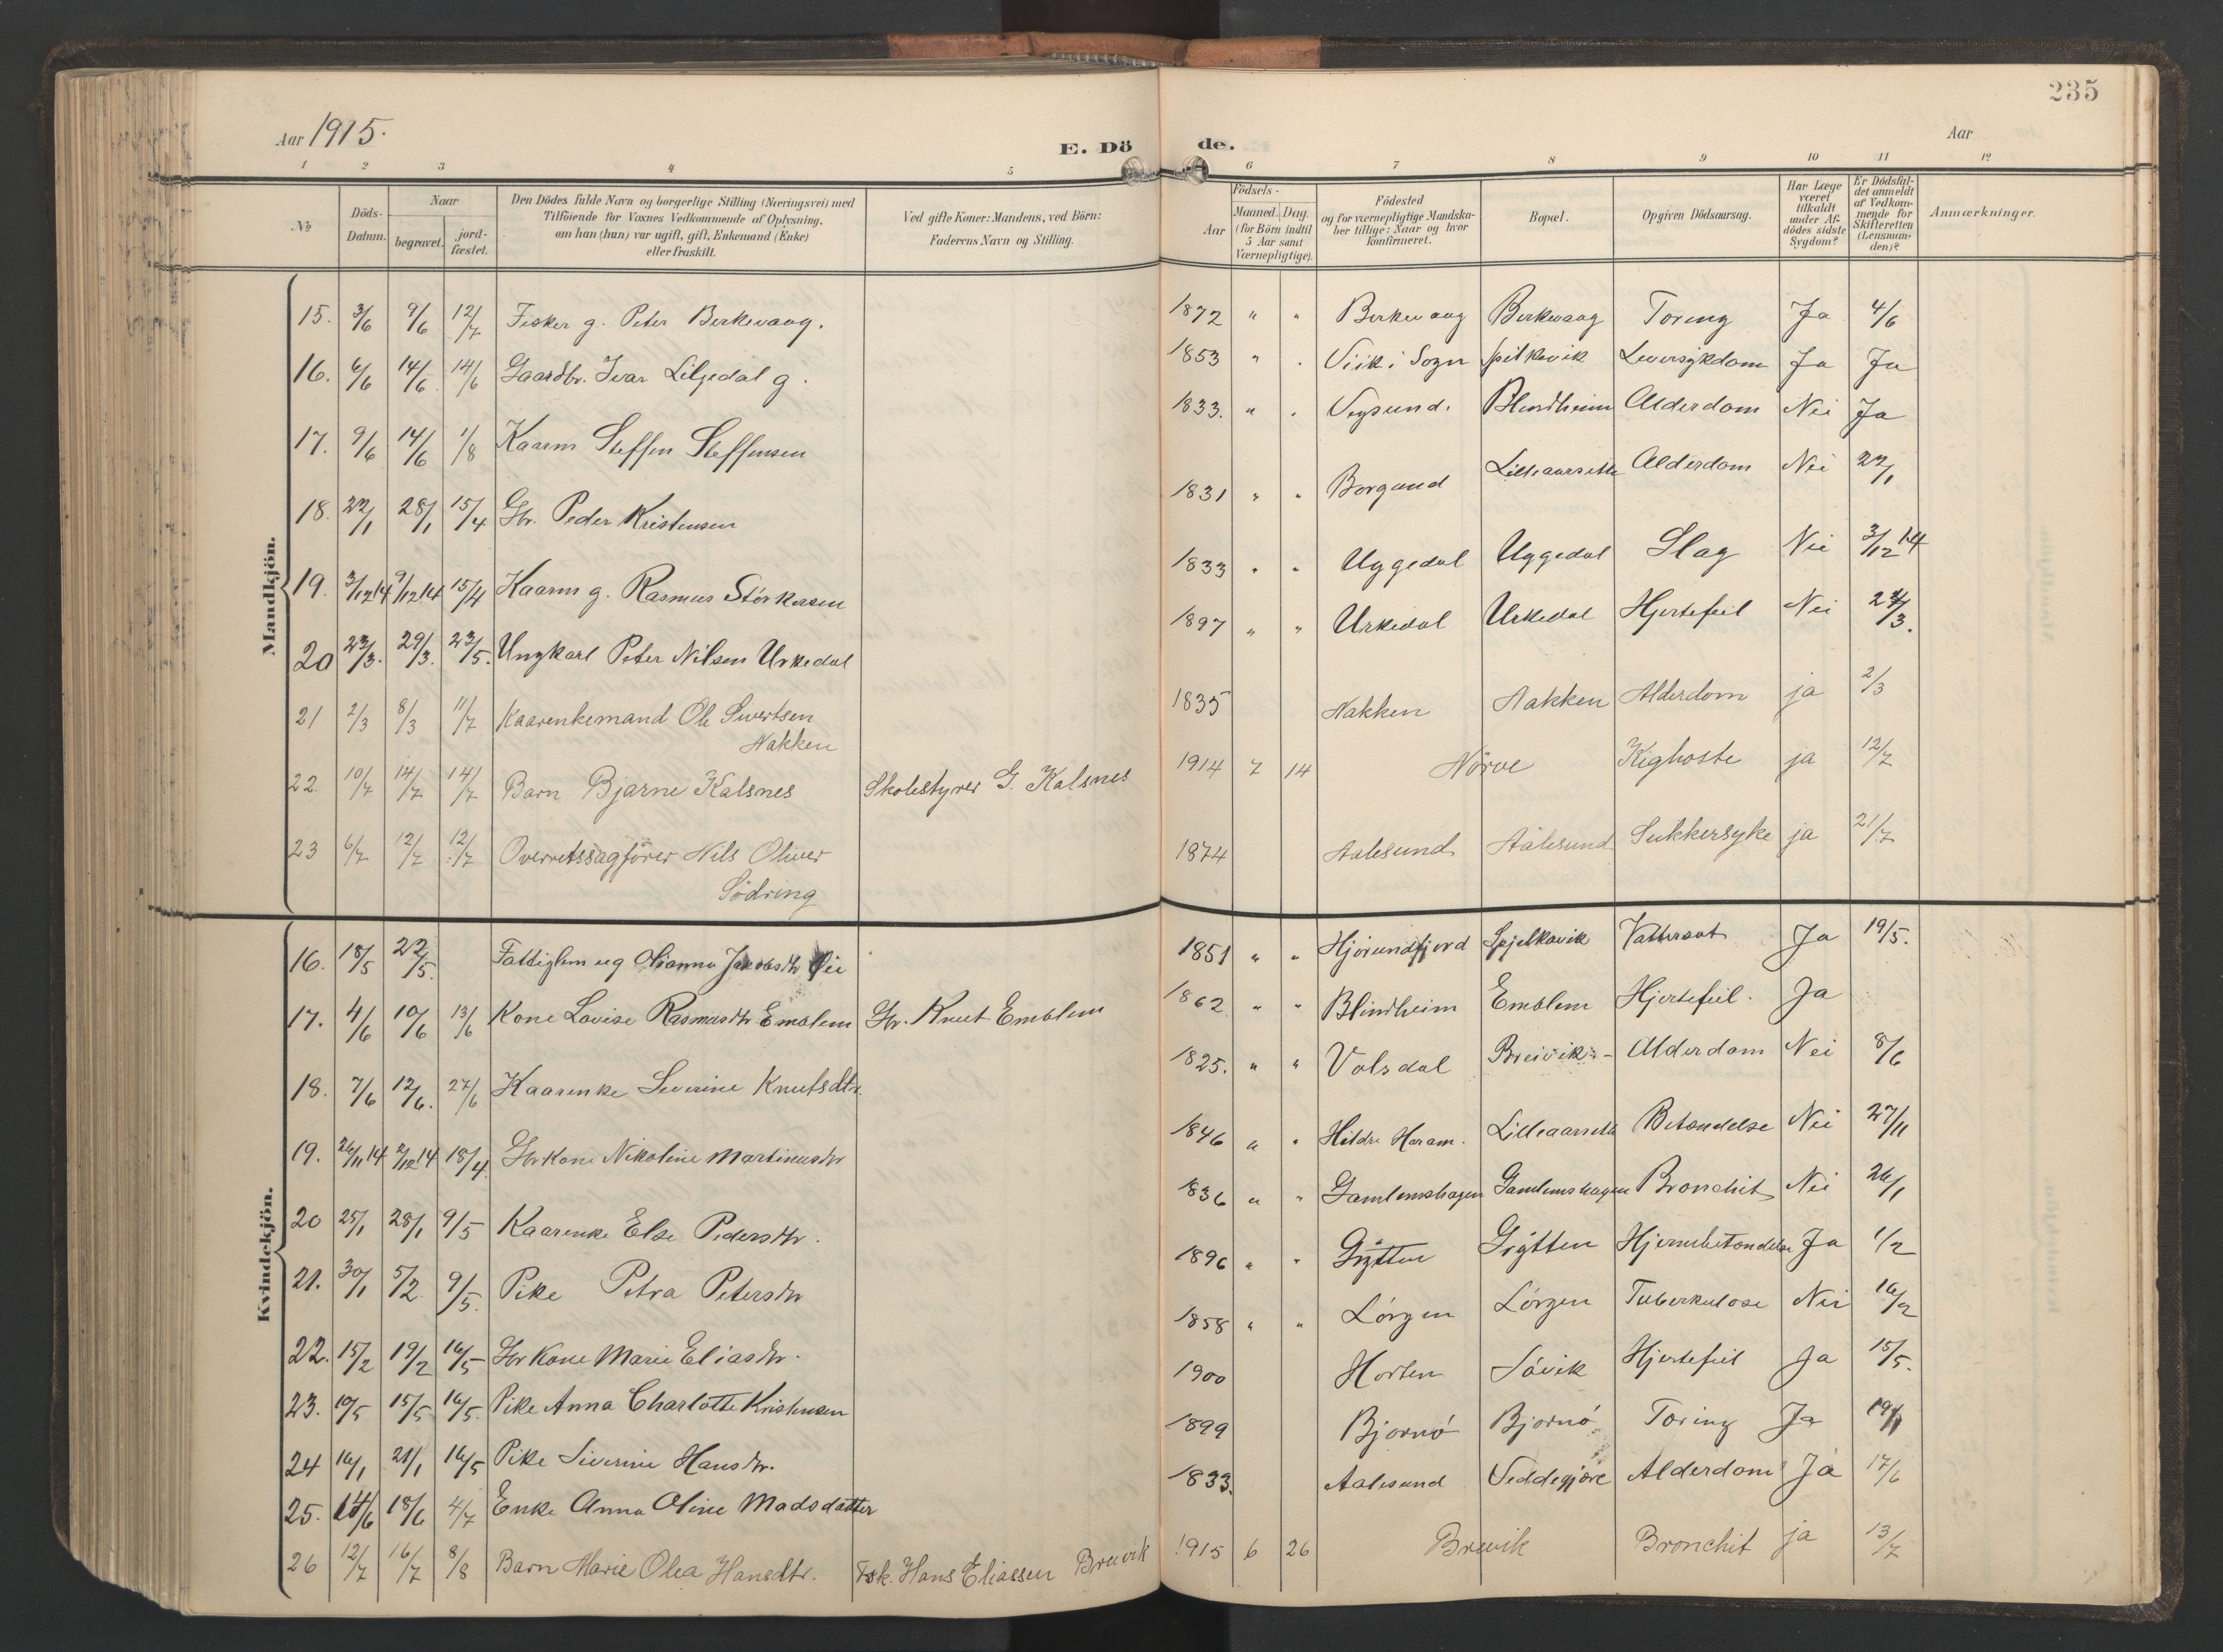 235
Aar 1915.
E. Dö de.
Aar
1 2 3 4 5 6 7 8 9 10 11 12
No
Döds-Datum.
Naar
begravet.
jord-fæstet.
Den Dödes fulde Navn og borgerlige Stilling (Næringsvei) med
Tilföiende for Voxnes Vedkommende af Oplysning,
om han (hun) var ugift, gift, Enkemand (Enke)
eller fraskilt.
Ved gifte Koner: Mandens, ved Börn:
Faderens Navn og Stilling.
Födsels-
Aar
Maaned. Dag.
(for Börn indtil
5 Aar samt
Værnepligtige).
Födested
og for værnepligtige Mandska-
ber tillige: Naar og hvor
konfirmeret.
Bopæl.
Opgiven Dödsaarsag.
Har Læge
været
tilkaldt
under Af-
dödes sidste
Sygdom?
Er Dödsfal-
det anmeldt
af Vedkom-
mende for
Skifteretten
(Lensman-
den)?
Anmærkninger.
Mandkjön.
15. 3/6 9/6 12/7 Fisker g. Peter Berkevaag. 1872 " " Berkevaag Berkevaag Toring Ja 4/6
16. 6/6 14/6 14/6 Gaardbr. Ivar Liljedal g. 1853 " . Viik i Sogn Spilkevik Leversykdom Ja Ja
17. 9/6 14/6 1/8 Kaarm Steffen Steffensen 1833. " . Vegsund. Blindheim Alderdom Nei Ja
18. 22/1 28/1 15/4 Gbr. Peder Kristensen 1831 " " Borgund Lilleaarseth Alderdom Nei 22/1
19. 3/12 14 9/12 14 15/4 Kaarm g. Rasmus Störkersen 1833 " " Uggedal Uggedal Slag Nei 3/12 14
20 23/3. 29/3. 23/5. Ungkarl Peter Nilsen Urkedal 1897 " " Urkedal Urkedal Hjertefeil Nei 24/3.
21 2/3 8/3 11/7 Kaarenkemand Ole Sivertsen
Nakken 1835 Nakken Nakken Alderdom ja 2/3
22. 10/7 14/7 14/7 Barn Bjarne Kalsnes Skolestyrer G. Kalsnes 1914 7 14 Nörve Kighoste ja 12/7
23 6/7 12/7 12/7 Overretssagförer Nils Oliver
Södring 1874 Aalesund Aalesund Sukkersyke ja 21/7
Kvindekjön.
16. 18/5 22/5. Fattiglem ug Olianna Jakobsdtr 1851 " " Hjörundfjord Spjelkavik Vattersot Ja 19/5.
17. 4/6 10/6 13/6 Kone Lovise Rasmusdtr Emblem Gbr. Knut Emblem 1862 " " Blindheim Emblem Hjertefeil. Ja
18. 7/6 12/6. 27/6 Kaarenke Severine Knutsdtr. 1825. " " Volsdal Breivik Alderdom Nei 8/6
19. 26/11 14 2/12 14 18/4 Gbrkone Nikoline Martinusdtr 1846 " " Hildre Haram. Lilleaarseth Betændelse Nei 27/11
20 25/1 28/1 9/5 Kaarenke Else Pedersdtr. 1836 " " Gamlemshagen Gamlemshagen Bronchit Nei 26/1
21. 30/1 5/2 9/5. Pike Petra Petersdtr 1896 " " Grÿtten Grÿtten Hjernebetændelse Ja 1/2
22. 15/2 19/2 16/5 Gbrkone Marie Eliasdtr. 1858 " " Lörgen Lörgen Tuberkulose Nei 16/2
23. 10/5 15/5 16/5. Pike Anna Charlotte Kristensen 1900 Horten Sövik Hjertefeil Ja 15/5.
24 16/1 21/1 16/5 Pike Siverine Hansdtr. 1899 Bjornö Bjornö Toring Ja 19/1
25. 14/6 18/6 4/7 Enke Anna Oline Madsdatter 1833. Aalesund Veddegjöre Alderdom Ja 17/6
26 12/7 16/7 8/8 Barn Marie Olea Hansdtr. Fsk. Hans Eliassen Breivik 1915 6 26 Breivik Bronchit ja 13/7